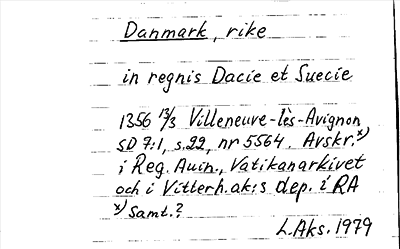 Danmark, rike
in regnis Dacie et Suecie
1356 13/3 Villeneuve-lès-Avignon
SD 7:1, s.22, nr 5564. Avskr.x)
i Reg. Avin., Vatikanarkivet
och i Vitterh.ak:s dep. i RA
x) Samt.?
L.Aks. 1979